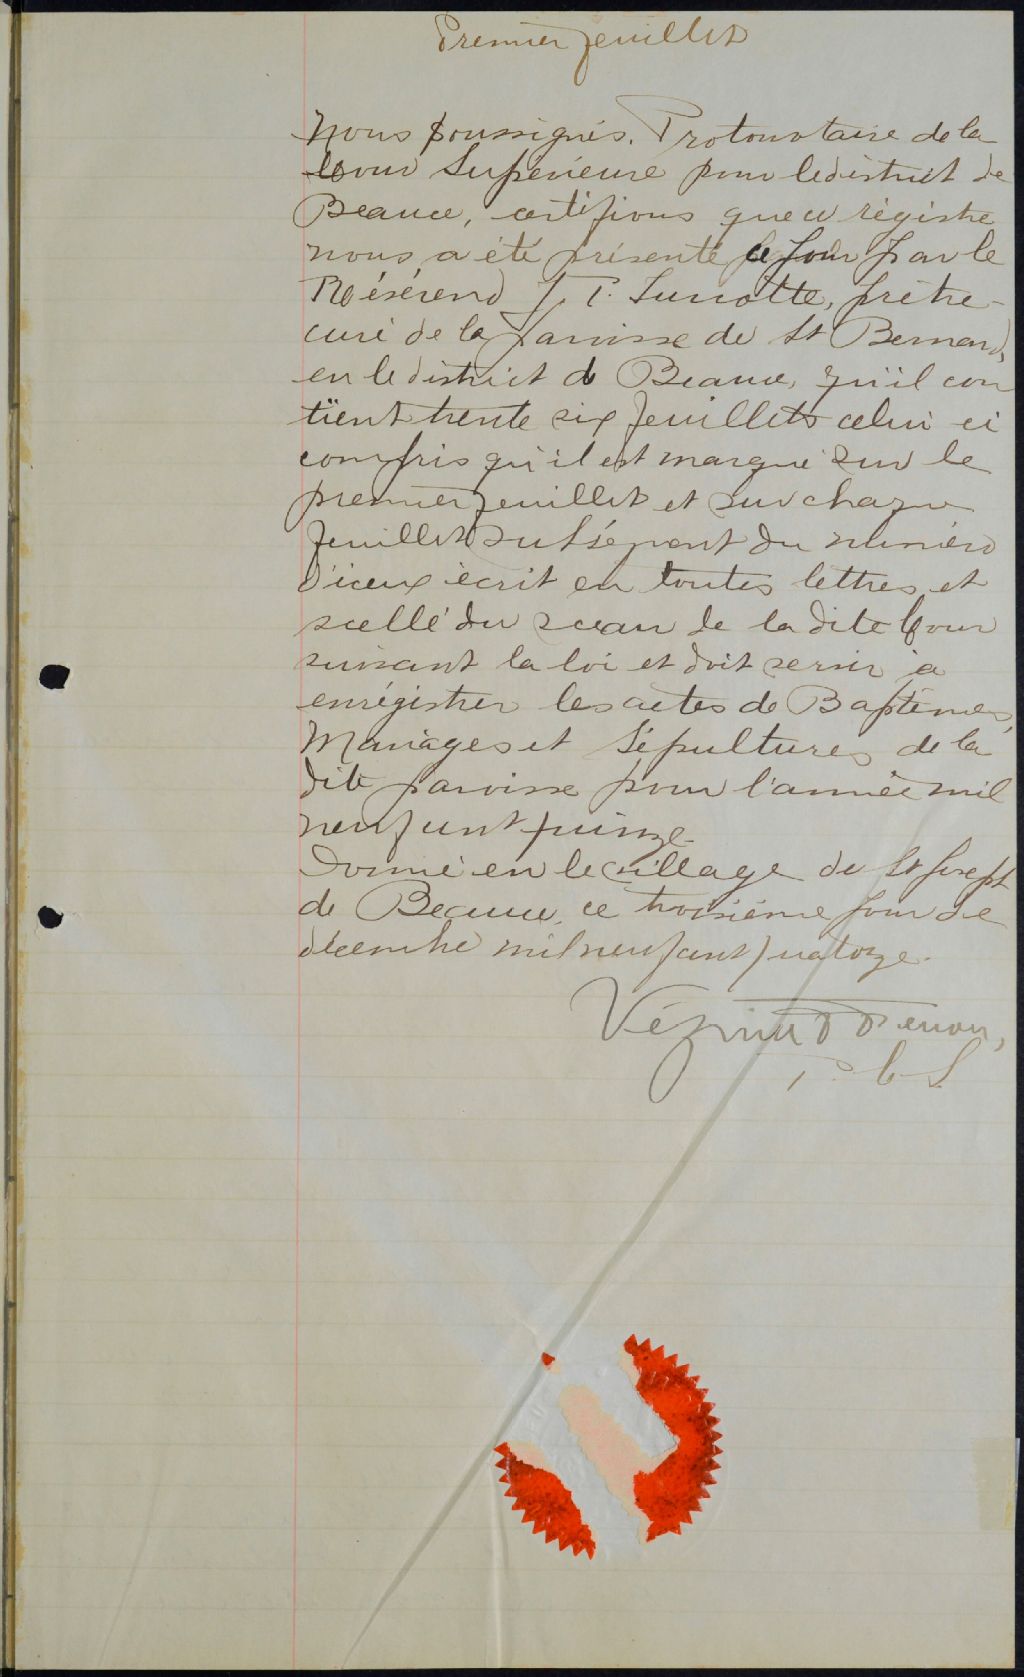 Premier feuillet
Nous soussignés. Protonotaire de la
Cour Supérieure pour le district de
Beauce, certifions que ce régistre
nous a été présenté ce jour par le
Révérend J. T. Turcotte, prêtre
curé de la paroisse de St Bernard,
en le district de Beauce, qu'il con
tient trente six feuillets celui ci
compris qu'il est marqué sur le
premier feuillet et sur chaque
feuillet subséquent du numéro
d'iceux écrit en toutes lettres et
scellé du sceau de la dite Cour
suivant la loi et doit servir à
enrégistrer les actes de Baptêmes,
Mariages et Sépultures de la
dite paroisse pour l'année mil
neuf cent quinze
Donné en le village de St Joseph
de Beauce, ce troisième jour de
décembre mil neuf cent quatorze.
Vézina
P. C. S.